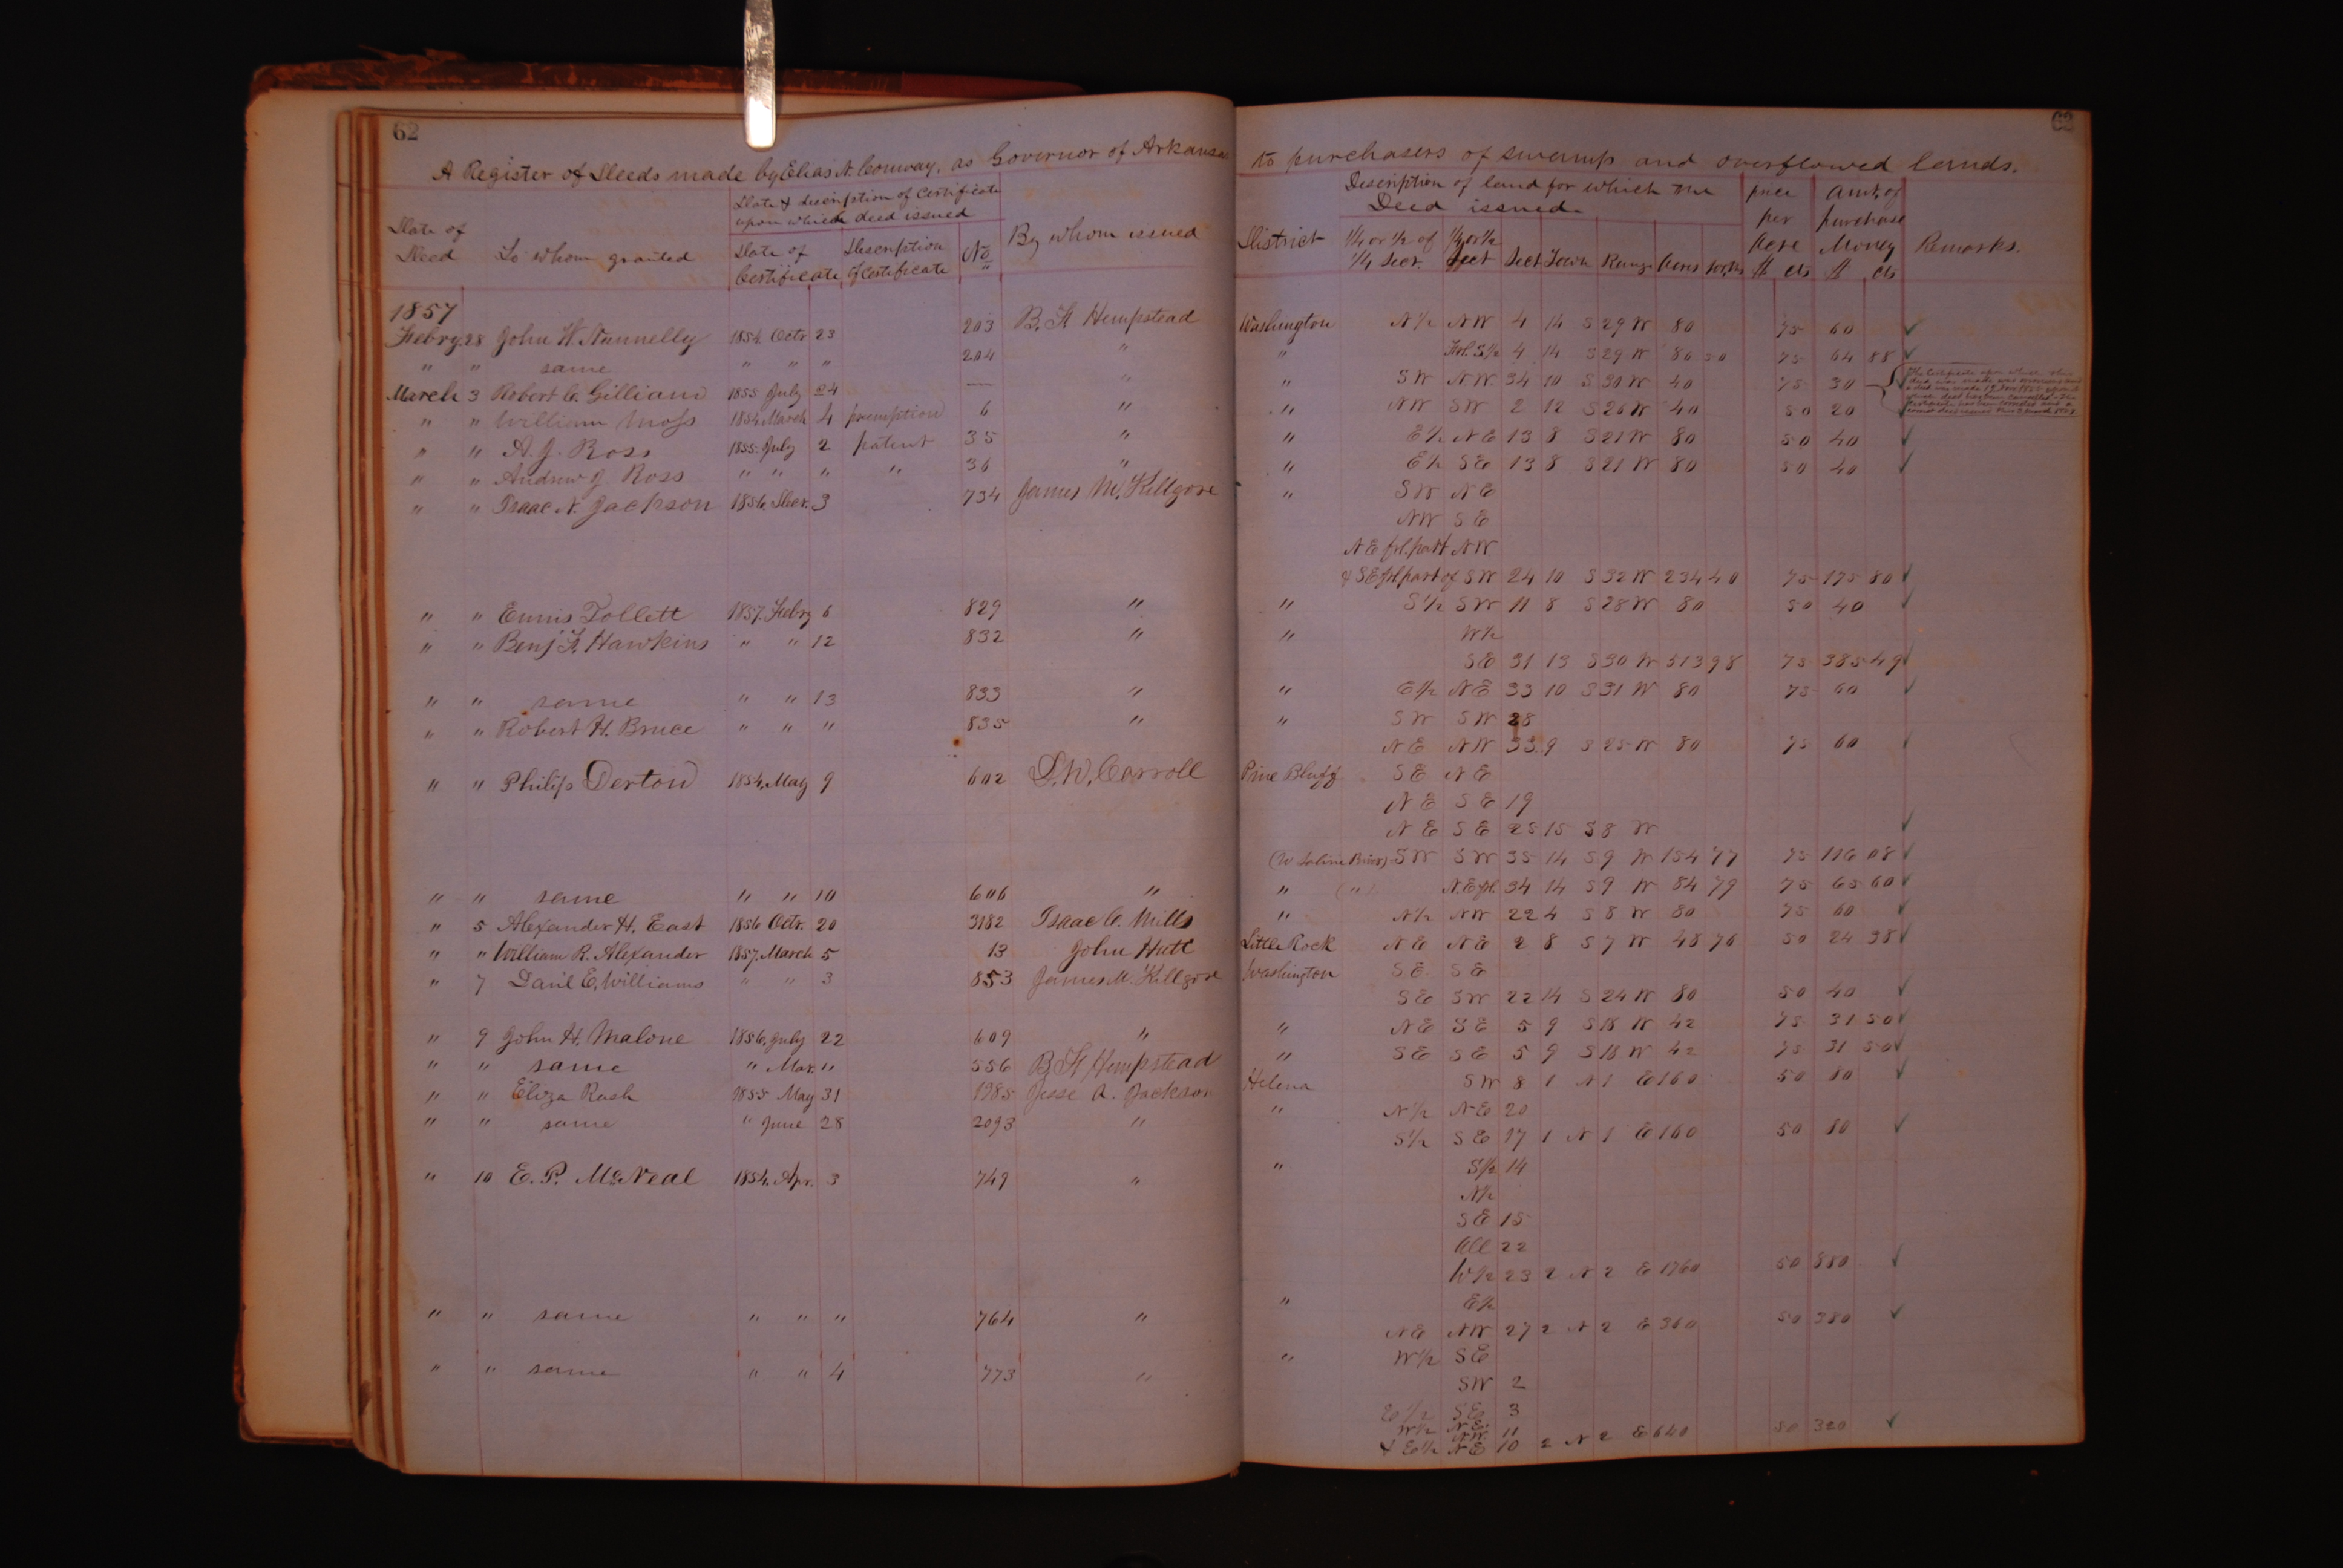 62
63
A Register of Deeds made by Elias N. Conway, as Governor of Arkansas to purchasers of swamp and overflowed lands.
Date of Deed To whom granted Date & description of certificate upon which deed issued By whom issued District Description of land for which the Deed issued. price per Acre $ cts Amt. of purchase Money $ cts Remarks.
Date of Certificate Description of Certificate No. 1/4 or 1/2 of 1/4 Sect. 1/4 or 1/2 Sect Sect Town Range Acres 100ths
1857
Febry. 28 John W. Nunnelly 1854. Octr 23 203 B. F. Hempstead Washington N 1/2 NW 4 14 S 29 W 80 75 60 ✓
" " same " " " 204 " " Frl. S 1/2 4 14 S 29 W 86 50 75 64 88 ✓
March 3 Robert C. Gilliam 1855 July 24 — " " SW NW 34 10 S 30 W 40 75 30
" " William Moss 1854 March 4 premption 6 " " NW SW 2 12 S 26 W 40 50 20
" " A. J. Ross 1855 July 2 patent 35 " " E 1/2 NE 13 8 S 21 W 80 50 40 ✓
" " Andrew J Ross " " " " 36 " " E 1/2 SE 13 8 S 21 W 80 50 40 ✓
" " Isaac N. Jackson 1856. Decr. 3 734 James M. Killgore " SW NE
NW SE
NE frl. part NW
& SE frl part of SW 24 10 S 32 W 234 40 75 175 80 ✓
" " Ennis Tollett 1857. Febry 6 829 " " S 1/2 SW 11 8 S 28 W 80 50 40 ✓
" " Benj F. Hawkins " " 12 832 " " W 1/2
SE 31 13 S 30 W 513 98 75 385 49 ✓
" " same " " 13 833 " " E 1/2 NE 33 10 S 31 W 80 75 60 ✓
" " Robert H. Bruce " " " 835 " " SW SW 28
NE NW 33 9 S 25 W 80 75 60 ✓
" " Philip Derton 1854. May 9 602 D. W. Carroll Pine Bluff SE NE
NE SE 19
NE SE 25 15 S 8 W ✓
(W Saline River) SW SW 35 14 S 9 W 154 77 75 116 08 ✓
" " same " " 10 606 " " (") N.E frl. 34 14 S 9 W 84 79 75 63 60 ✓
" 5 Alexander H. East 1856 Octr. 20 3182 Isaac C. Mills " N 1/2 NW 22 4 S 8 W 80 75 60 ✓
" " William R. Alexander 1857. March 5 13 John Hutt Little Rock NE NE 2 8 S 7 W 48 76 50 24 38 ✓
" 7 Danl E. Williams " " 3 853 James M. Killgore Washington SE SE
SE SW 22 14 S 24 W 80 50 40 ✓
" 9 John H. Malone 1856. July 22 609 " " NE SE 5 9 S 18 W 42 75 31 50 ✓
" " same " Mar. 11 556 B F Hempstead " SE SE 5 9 S 18 W 42 75 31 50 ✓
" " Eliza Rush 1855 May 31 1985 Jesse A. Jackson Helena SW 8 1 N 1 E 160 50 80 ✓
" " same " June 28 2093 " " N 1/2 NE 20
S 1/2 SE 17 1 N 1 E 160 50 80 ✓
" 10 E. P. McNeal 1854. Apr. 3 749 " " S 1/2 14
N 1/2
SE 15
All 22
W 1/2 23 2 N 2 E 1760 50 880 ✓
" " same " " " 764 " " E 1/2
NE NW 27 2 N 2 E 360 50 380 ✓
" " same " " 4 773 " " W 1/2 SE
SW 2
E 1/2 SE 3
W 1/2 NE
NW 11
& E 1/2 NE 10 2 N 2 E 640 50 320 ✓